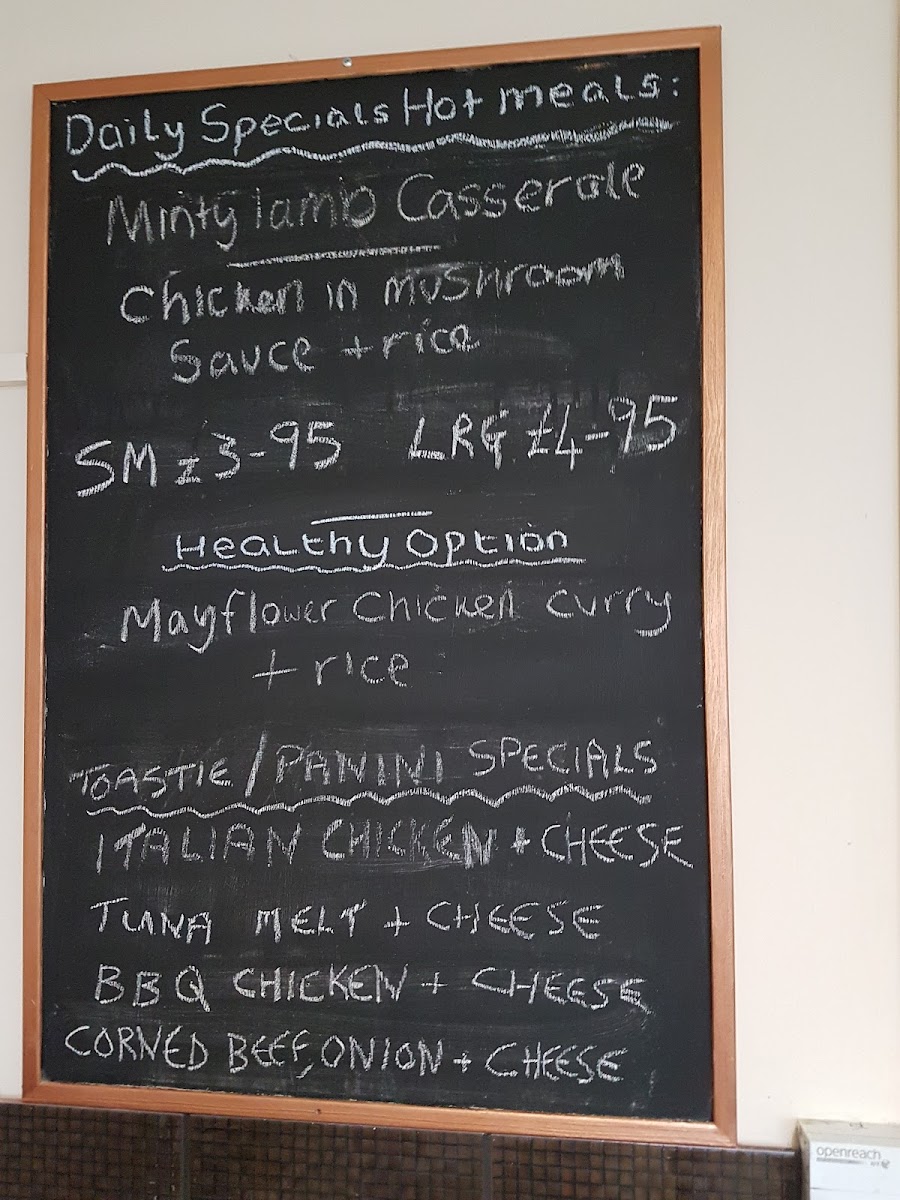 Daily Specials Hot meals:
Minty lamb Casserole
Chicken in mushroom
Sauce + rice
SM £3-95 LRG £4-95
Healthy Option
Mayflower Chicken curry
+ rice
TOASTIE / PANINI SPECIALS
ITALIAN CHICKEN + CHEESE
TUNA MELT + CHEESE
BBQ CHICKEN + CHEESE
CORNED BEEF, ONION + CHEESE
openreach